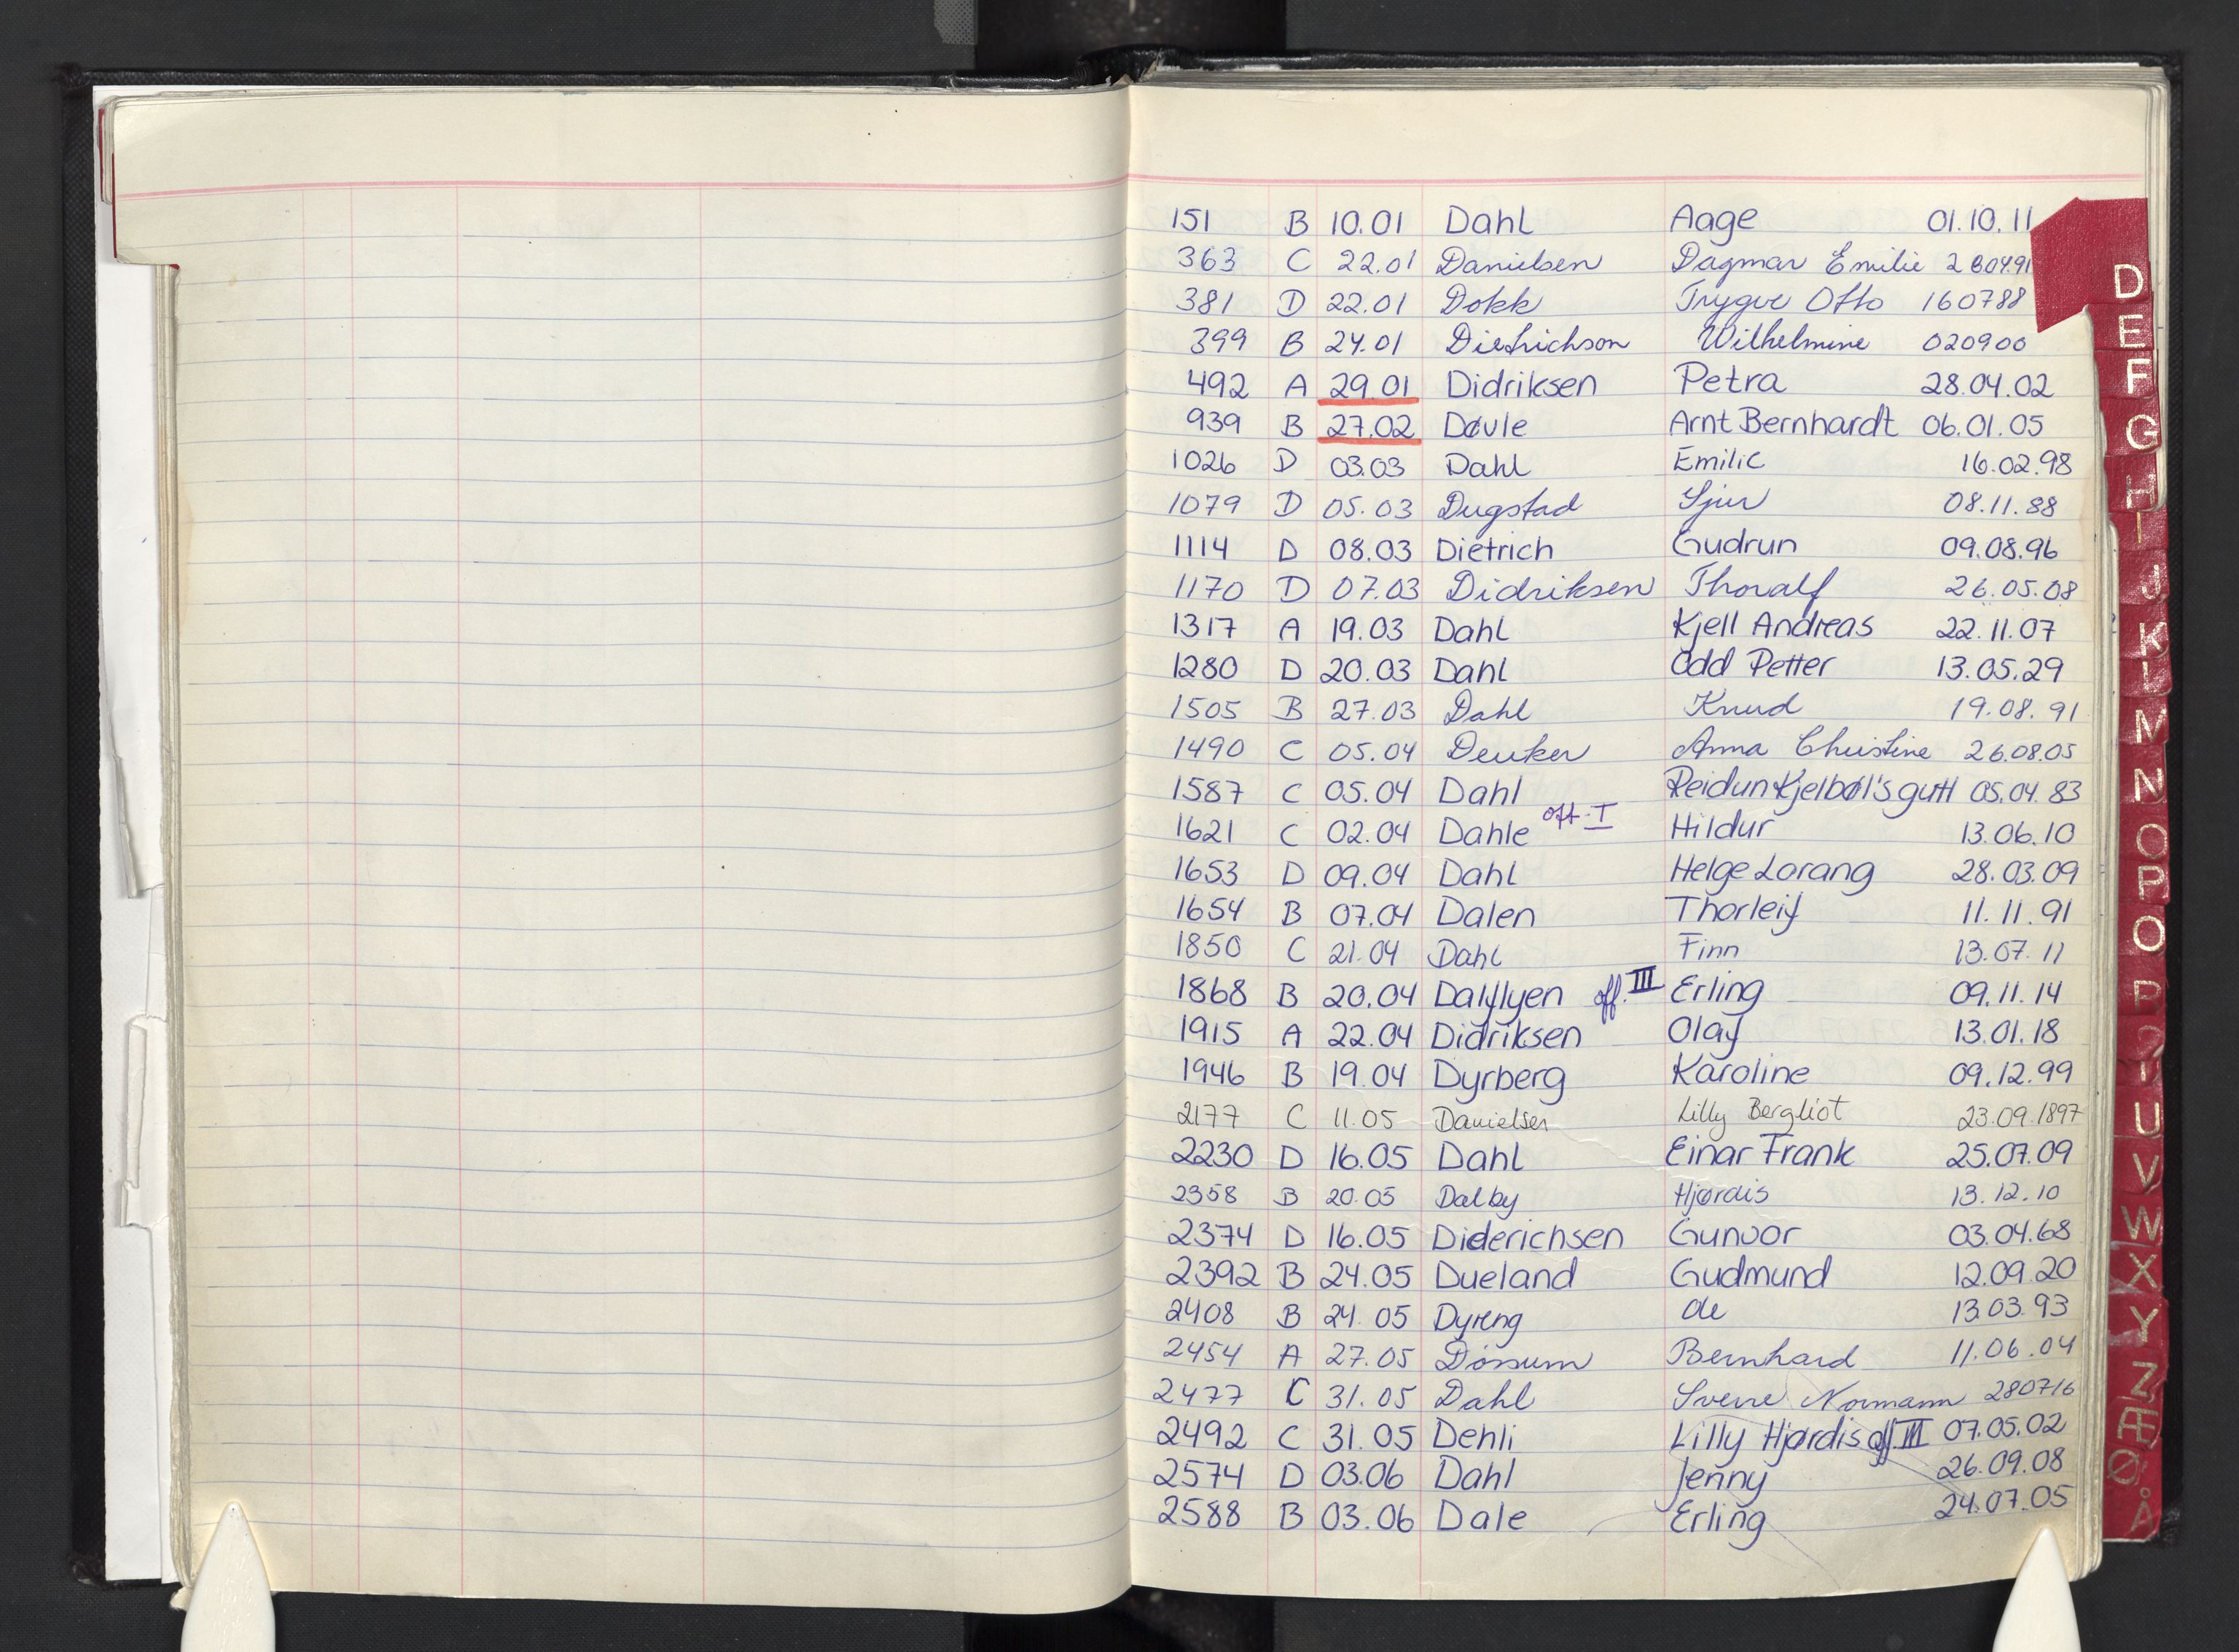 151 B 10.01 Dahl Aage 01.10.11
363 C 22.01 Danielsen Dagmar Emilie 280491
381 D 22.01 Dokk Trygve Otto 160788
399 B 24.01 Dietrichson Wilhelmine 020900
492 A 29.01 Didriksen Petra 28.04.02
939 B 27.02 Døvle Arnt Bernhardt 06.01.05
1026 D 03.03 Dahl Emilie 16.02.98
1079 D 05.03 Dugstad Sjur 08.11.88
1114 D 08.03 Dietrich Gudrun 09.08.96
1170 D 07.03 Didriksen Thoralf 26.05.08
1317 A 19.03 Dahl Kjell Andreas 22.11.07
1280 D 20.03 Dahl Odd Petter 13.05.29
1505 B 27.03 Dahl Knud 19.08.91
1490 C 05.04 Deuker Anna Christine 26.08.05
1587 C 05.04 Dahl Reidun Kjelbøl's gutt 05.04.83
1621 C 02.04 Dahle off. I Hildur 13.06.10
1653 D 09.04 Dahl Helge Lorang 28.03.09
1654 B 07.04 Dalen Thorleif 11.11.91
1850 C 21.04 Dahl Finn 13.07.11
1868 B 20.04 Dalflyen off. III Erling 09.11.14
1915 A 22.04 Didriksen Olaf 13.01.18
1946 B 19.04 Dyrberg Karoline 09.12.99
2177 C 11.05 Danielsen Lilly Bergliot 23.09.1897
2230 D 16.05 Dahl Einar Frank 25.07.09
2358 B 20.05 Dalby Hjørdis 13.12.10
2374 D 16.05 Diderichsen Gunvor 03.04.68
2392 B 24.05 Dueland Gudmund 12.09.20
2408 B 24.05 Dyreng Ole 13.03.93
2454 A 27.05 Dørum Bernhard 11.06.04
2477 C 31.05 Dahl Sverre Normann 280716
2492 C 31.05 Dehli Lilly Hjørdis off. III 07.05.02
2574 D 03.06 Dahl Jenny 26.09.08
2588 B 03.06 Dale Erling 24.07.05
D
E
F
G
H
I
J
K
L
M
N
O
P
U
V
W
X
Y
Z
Æ
Ø
Å